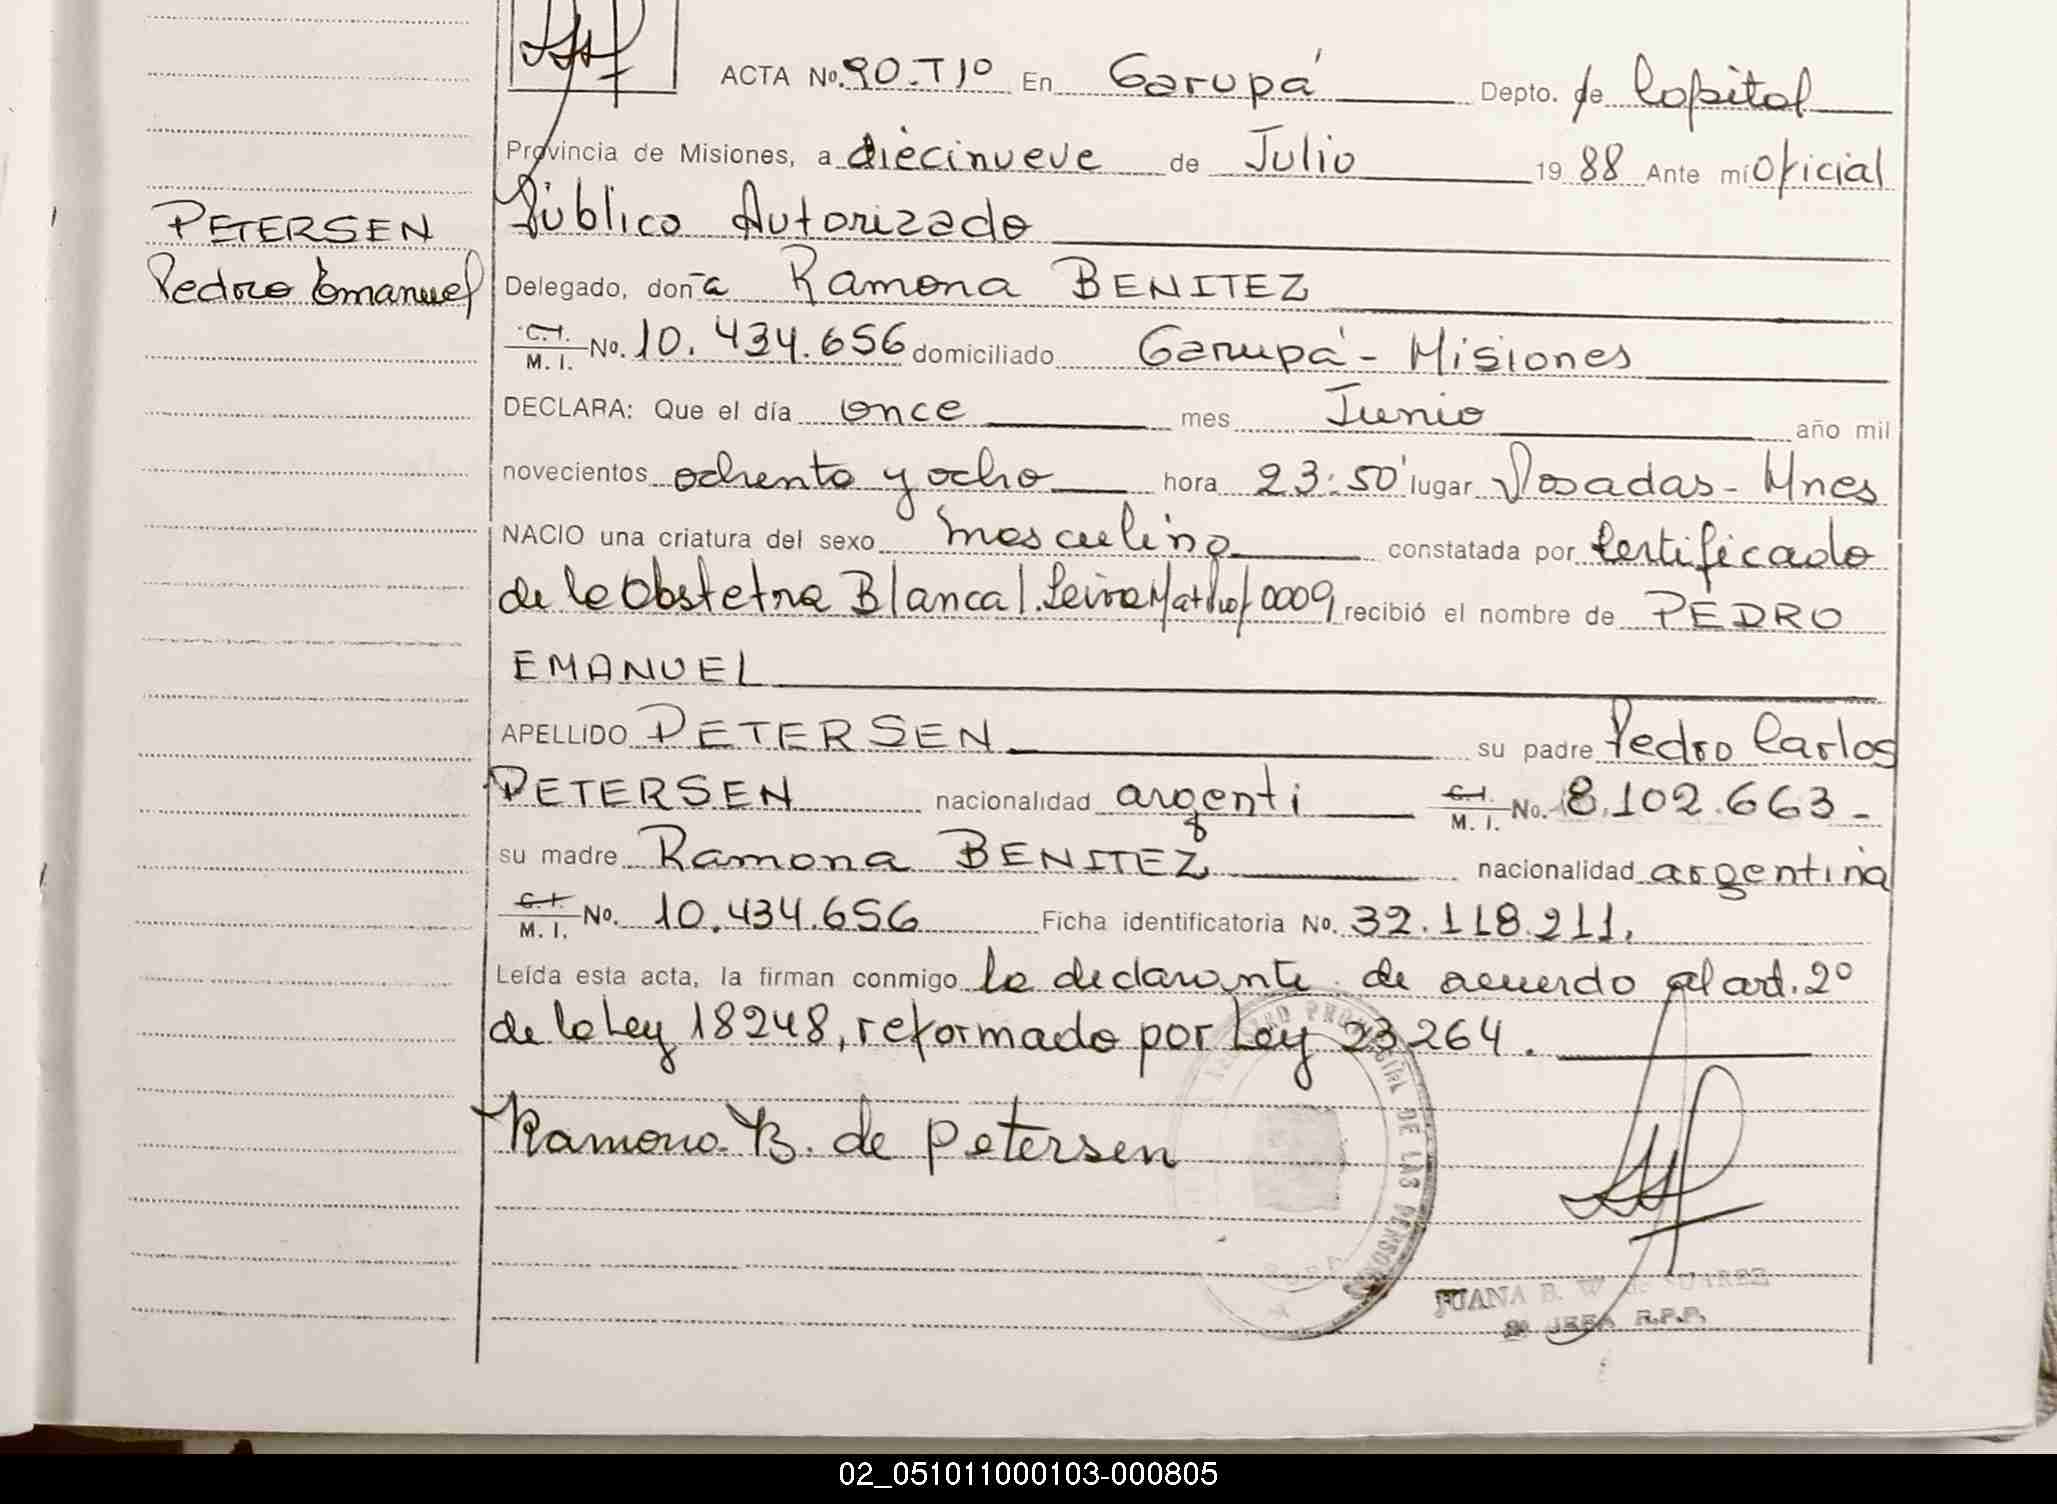 ACTA No. 90.T1º En Garupá Depto. de Capital
Provincia de Misiones, a diecinueve de Julio 1988 Ante mí Oficial
Público Autorizado
PETERSEN
Pedro Emanuel
Delegado, doña Ramona BENITEZ
C.I. M.I. No. 10.434.656 domiciliado Garupá - Misiones
DECLARA: Que el día once mes Junio año mil
novecientos ochenta y ocho hora 23:50' lugar Posadas - Mnes
NACIO una criatura del sexo masculino constatada por Certificado
de la Obstetra Blanca I. Leiva Mat Prof 0009 recibió el nombre de PEDRO
EMANUEL
APELLIDO PETERSEN su padre Pedro Carlos
PETERSEN nacionalidad argenti C.I. M.I. No. 8.102.663-
su madre Ramona BENITEZ nacionalidad argentina
C.I. M.I. No. 10.434.656 Ficha identificatoria No. 32.118.211.
Leída esta acta, la firman conmigo la declarante de acuerdo al art. 2º
de la Ley 18248, reformado por Ley 23264.
Ramona B. de Petersen
PROVINCIAL DE LAS PERSONAS
JUANA B. W de SUAREZ
JEFA R.P.P.
02_051011000103-000805